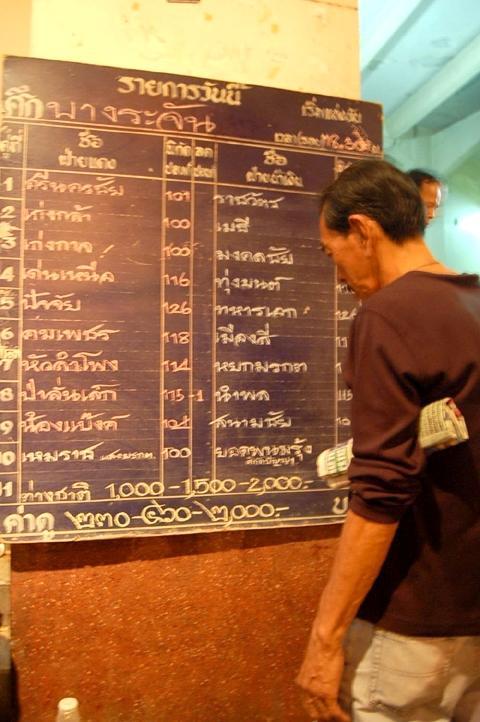 รายการวันนี้
ศึกบางระจัน เริ่มแข่งขัน
เวลา 18.30
คู่ที่ ชื่อฝ่ายแดง พิกัด ลด ชื่อฝ่ายน้ำเงิน
1 ศรีนครชัย 101 ราชวัตร
2 เก่งกล้า 100 เมธี
3 เก่งกาจ 105 มงคลชัย
4 เด่นเหนือ 116 ทุ่งมนต์
5 ปัจจัย 126 ทหารเอก
6 คมเพชร 118 เมืองสี
7 หัวลำโพง 114 หยกมรกต
8 ป่าล่นเด็ก 115-1 นำพล
9 น้องแบ๊งค์ 102 สนามชัย
10 เหมราช 100 ยอดพนมรุ้ง
11 ต่างชาติ 1,000-1,500-2,000.-
ค่าดู ๒๓๐-๔๖๐-๒,๐๐๐.- บ